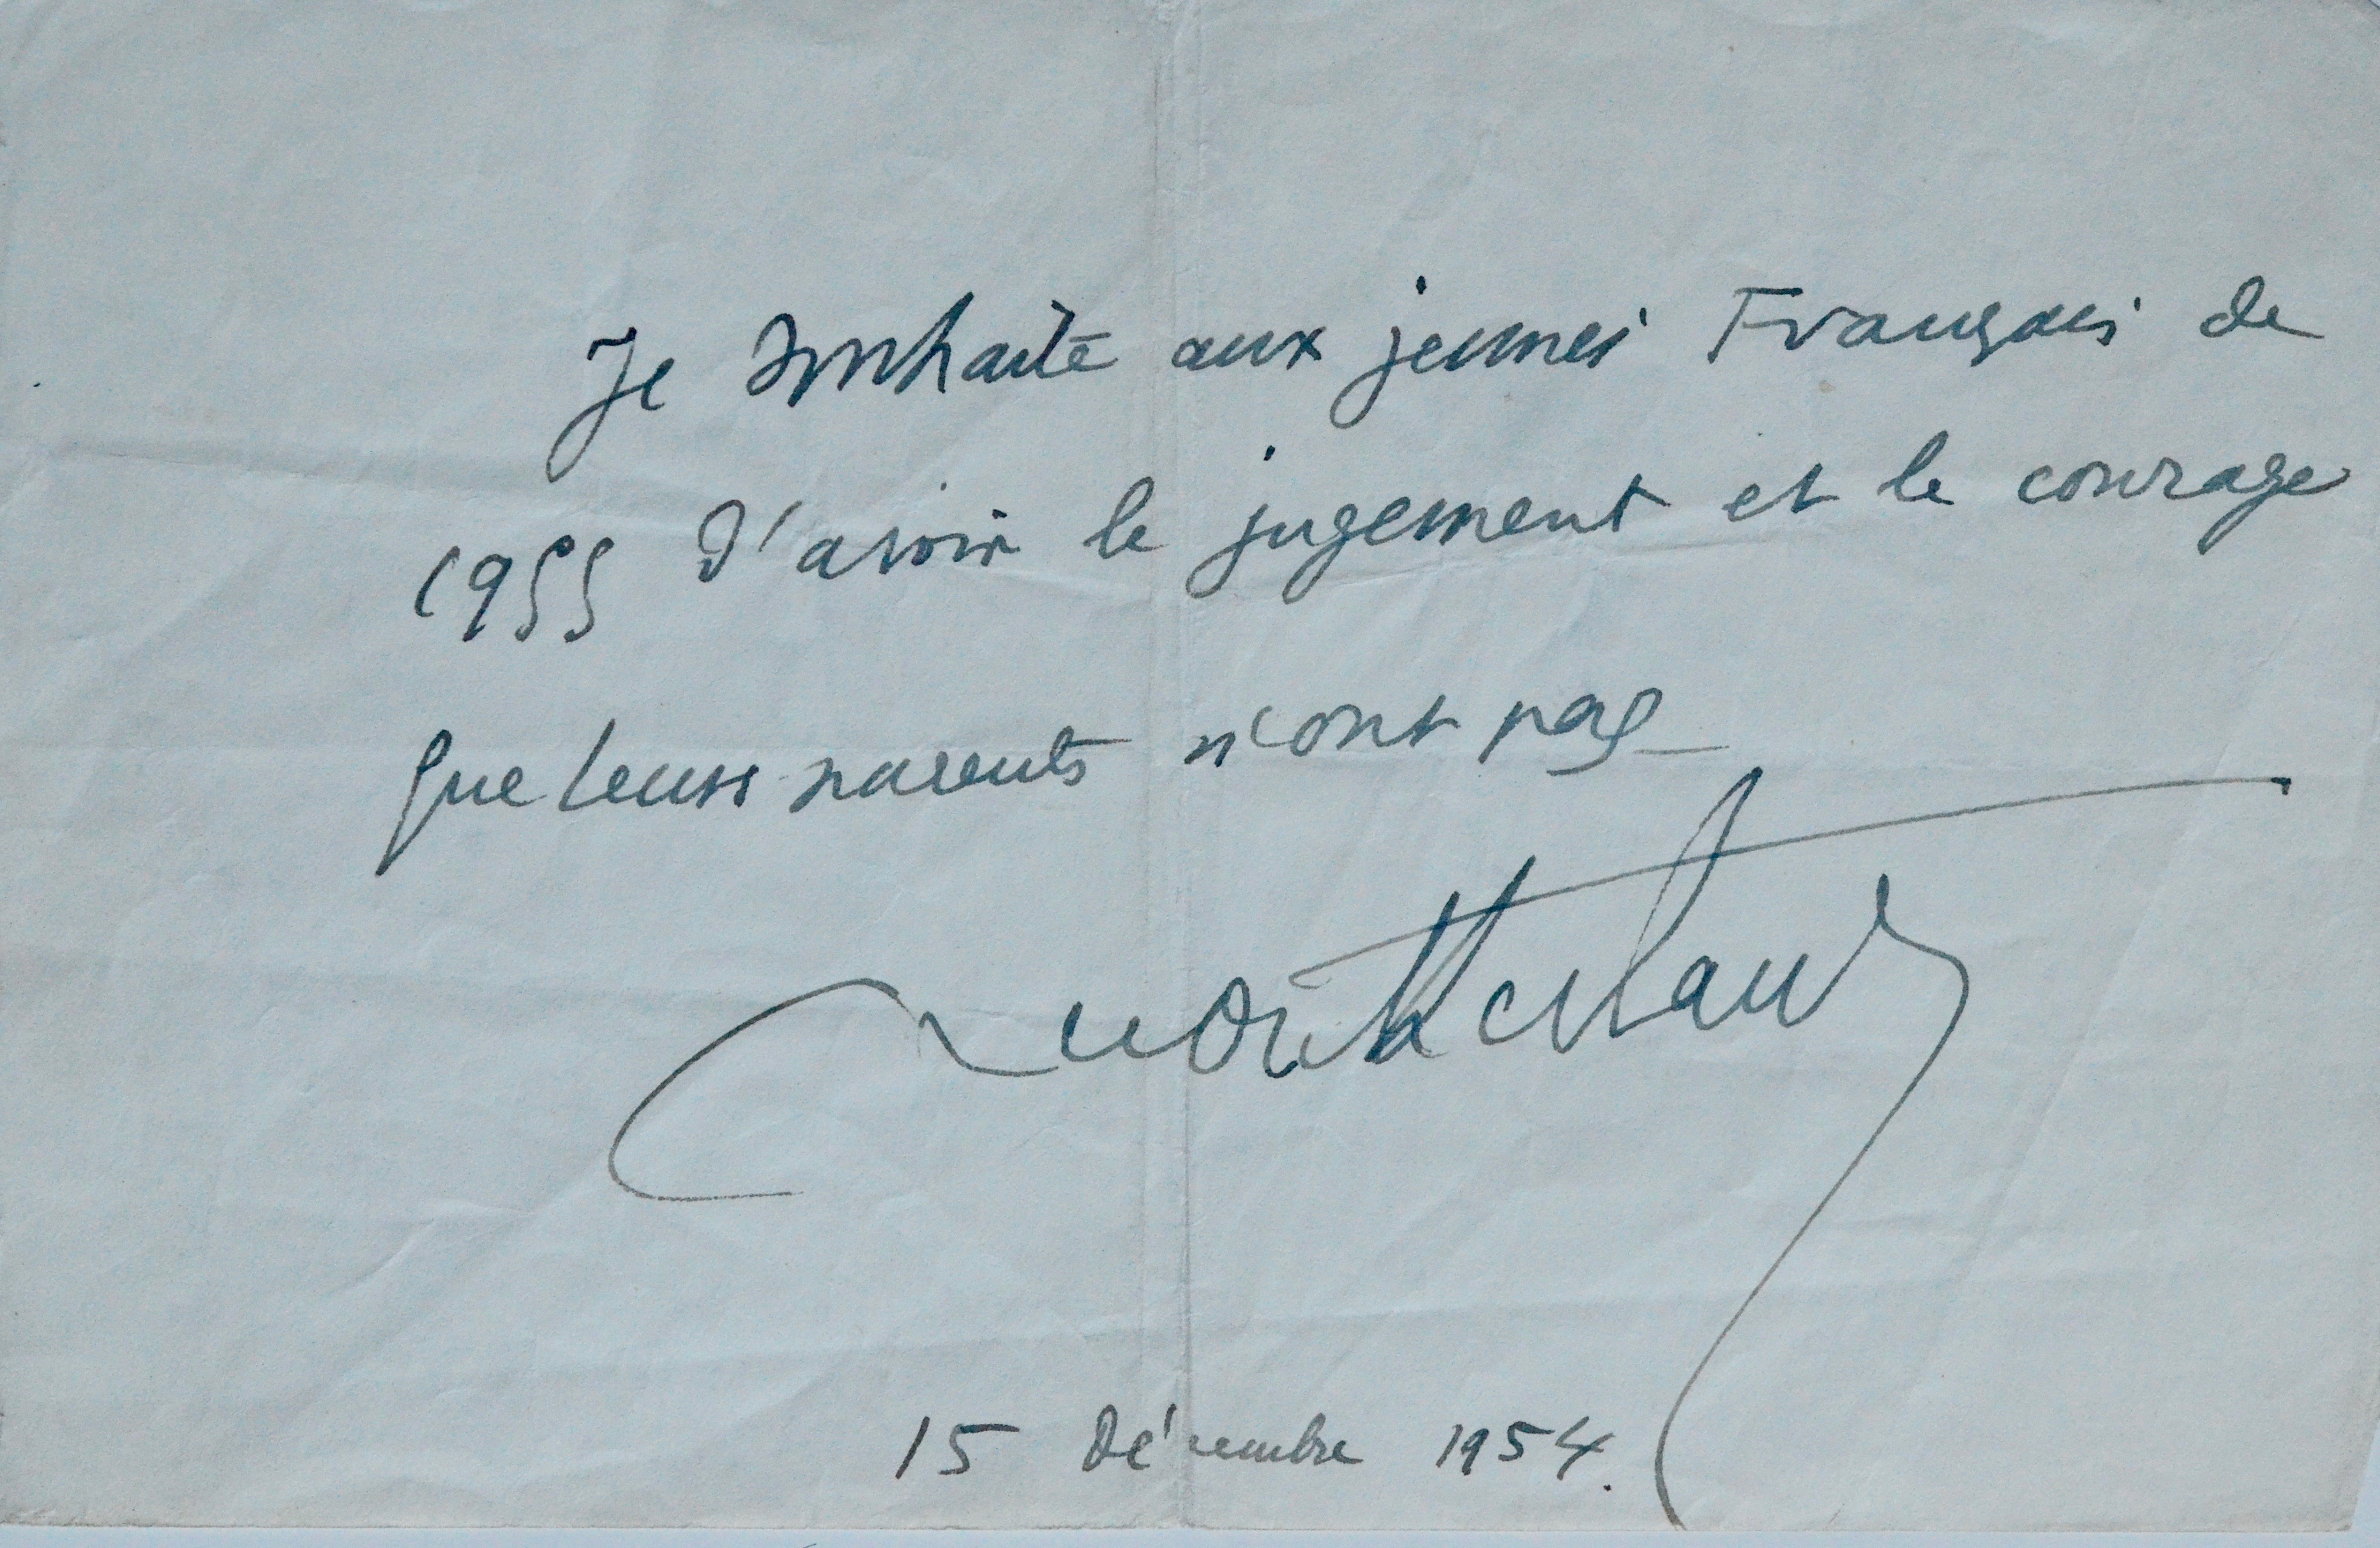 Je souhaite aux jeunes Français de
1955 d'avoir le jugement et le courage
que leurs parents n'ont pas_
Montherlant
15 décembre 1954.